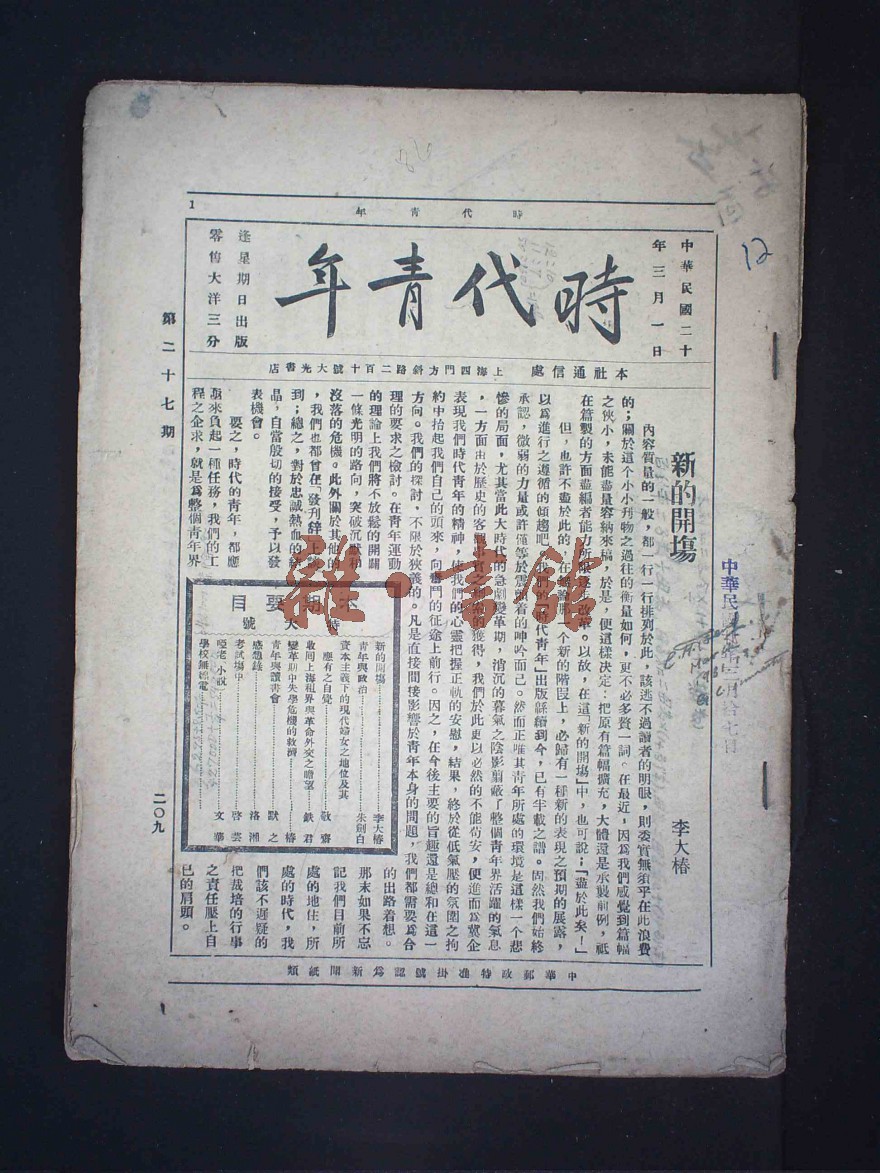 時代青年
1
中華民國二十
年三月一日
時代青年
逢星期日出版
零售大洋三分
本社通信處 上海西門方斜路二百十號大光書店
第二十七期
二〇九
12
新的開塲
李大椿
內容質量的一般，都一行一行排列於此，該逃不過讀者的明眼，則委實無須乎在此浪費
的；關於這個小小刊物之過往的衡量如何，更不必多贅一詞。在最近，因為我們感覺到篇幅
之狹小，未能盡量容納來稿，於是，便這樣決定：把原有篇幅擴充，大體還是承襲前例，祇
在篇製的方面盡編者能力所限逐步改革。以故，在這「新的開塲」中，也可說；「盡於此矣！」
但，也許不盡於此的，在無論那一個新的階段上，必歸有一種新的表現之預期的展露，
以為進行之遵循的傾趨吧。我們的「時代青年」出版緜續到今，已有半載之譜。固然我們始終
承認，微弱的力量或許僅等於震顫着的呻吟而已。然而正唯其青年所處的環境是這樣一個悲
慘的局面，尤其當此大時代的急劇變革期，消沉的暮氣之陰影翳蔽了整個青年界活躍的氣息
，一方面由於歷史的客觀事實之的獲得，我們於此更以必然的不能苟安，便進而為冀企
表現我們時代青年的精神，使我們的心靈把握正軌的安慰，結果，終於從低氣壓的氛圍之拘
約中抬起我們自己的頭來，向奮鬥的征途上前行。因之，在今後主要的旨趣還是總和在這一
方向。我們的探討，不限於狹義的。凡是直接間接影響於青年本身的問題，我們都需要為合
理的要求之檢討。在青年運動
的理論上我們將不放鬆的開闢
一條光明的路向，突破沉默和
沒落的危機。此外關於其他的
，我們也都曾在「發刊辭」上談
到；總之，對於忠誠熱血的結
晶，自當殷切的接受，予以發
表機會。
要之，時代的青年，都應
來負起一種任務，我們的工
程之企求，就是為整個青年界
的出路着想。
那末如果不忘
記我們目前所
處的地住，所
處的時代，我
們該不遲疑的
把栽培的行事
之責任壓上自
己的肩頭。
本期要目
特大號
新的開塲…李大椿
青年與政治…朱劍白
資本主義下的現代婦女之地位及其
應有之自覺…敬齋
收回上海租界與革命外交之瞻望…鉄君
變革期中失學危機的救濟…椿
青年與讀書會…默之
感想錄…洛湘
考試塲中…啓芸
啞老（小說）
學校無線電…文華
中華郵政特准掛號認為新聞紙類
中華民
雜·書館